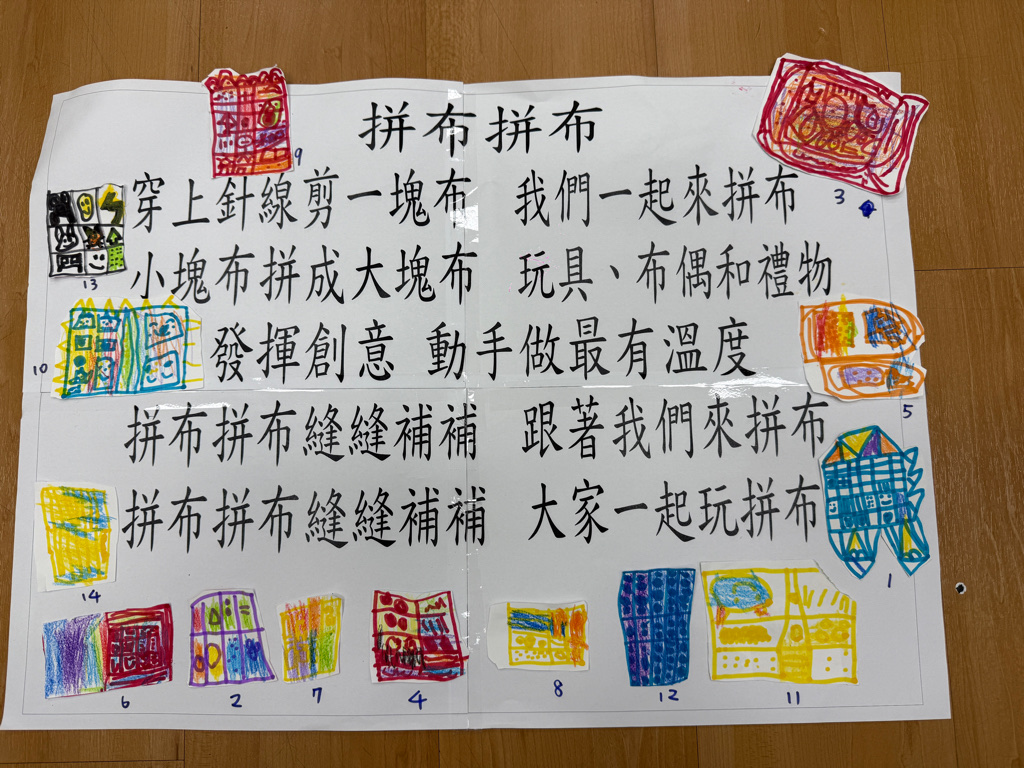 拼布拼布
穿上針線剪一塊布 我們一起來拼布
小塊布拼成大塊布 玩具、布偶和禮物
發揮創意 動手做最有溫度
拼布拼布縫縫補補 跟著我們來拼布
拼布拼布縫縫補補 大家一起玩拼布
9
3
13
10
5
1
14
6
2
7
4
8
12
11